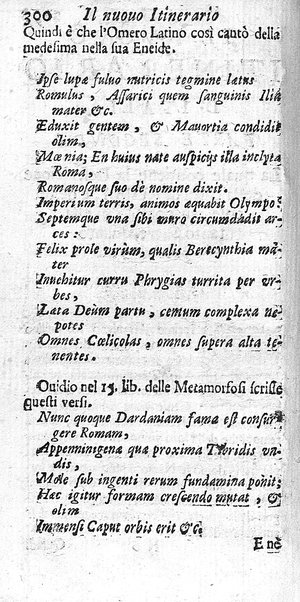 300 Il nuouo Itinerario
Quindi è che l'Omero Latino così cantò della
medesima nella sua Eneide.
Ipse lupæ fuluo nutricis tegmine lætus
Romulus, Assarici quem sanguinis Ilia
mater &c.
Eduxit gentem, & Mauortia condidit
olim,
Mœnia; En huius nate auspicijs illa inclyta
Roma,
Romanosque suo de nomine dixit.
Imperium terris, animos æquabit Olympo
Septemque vna sibi muro circumdabit ar-
ces:
Felix prole virûm, qualis Berecynthia ma-
ter
Inuehitur curru Phrygias turrita per vr-
bes,
Læta Deûm partu, centum complexa ne-
potes
Omnes Cœlicolas, omnes supera alta te-
nentes.
Ouidio nel 15. lib. delle Metamorfosi scrisse
questi versi.
Nunc quoque Dardaniam fama est consur-
gere Romam,
Appenninigenæ quæ proxima Tibridis vn-
dis,
Mole sub ingenti rerum fundamina ponit;
Hæc igitur formam crescendo mutat, &
olim
Immensi Caput orbis erit &c.
E nè